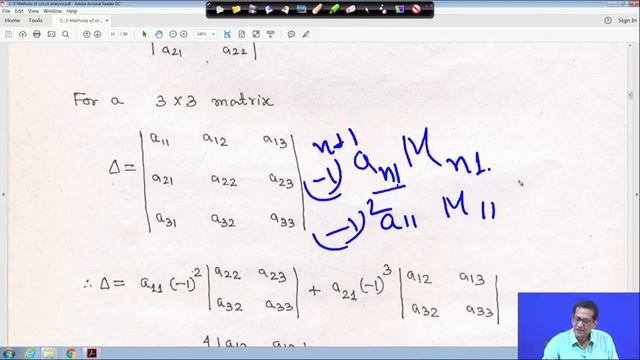 C-3-Methods of circuit analysis.pdf - Adobe Acrobat Reader DC
File Edit View Window Help
Home Tools C-3-Methods of cir... × Sign In
| a21 a22 |
For a 3 × 3 matrix
Δ = | a11 a12 a13 |
| a21 a22 a23 |
| a31 a32 a33 |
(-1)^n+1 a_n1 M_n1.
(-1)^2 a11 M11
∴ Δ = a11 (-1)^2 | a22 a23 | + a21 (-1)^3 | a12 a13 |
| a32 a33 | | a32 a33 |